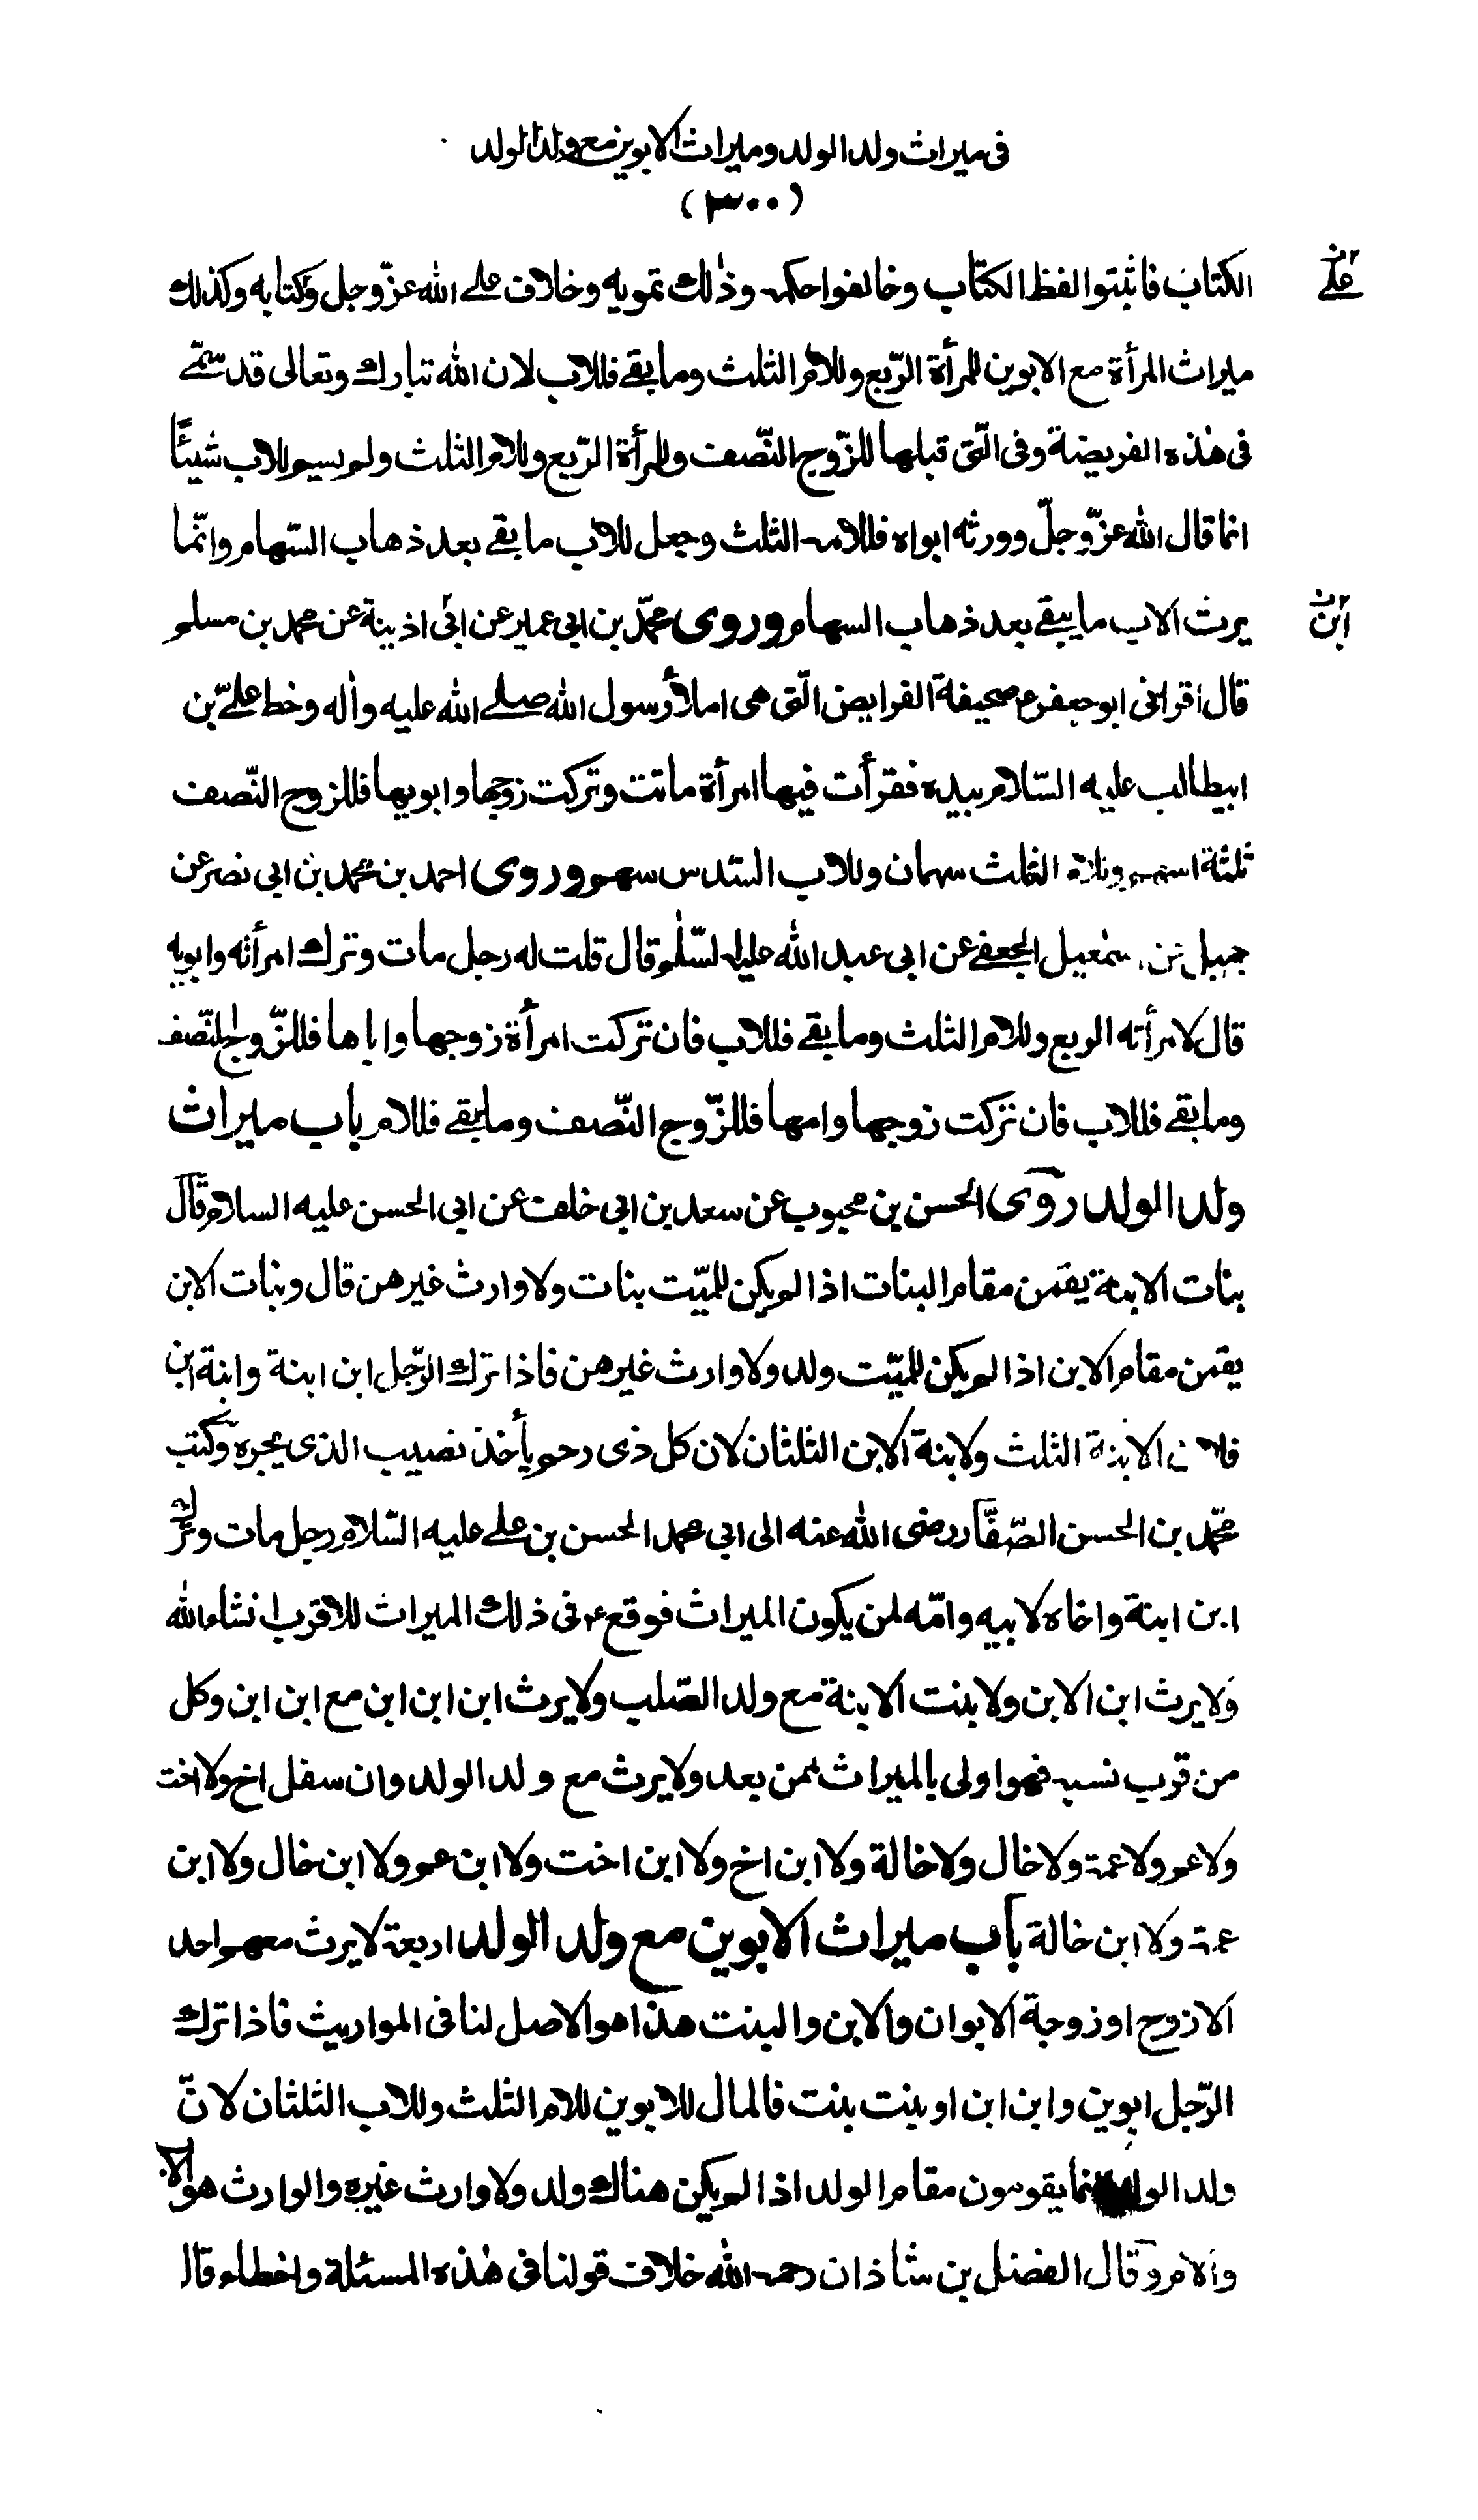 فى ميراث ولد الولد وميراث الابوين مع ولد الولد
(٣٠٠)
الكتاب فاثبتوا لفظ الكتاب وخالفوا حكمه وذٰلك تمويه وخلاف على الله عزّ وجل وكتابه وكذلك
على
ميراث المرأة مع الابوين للمرأة الرّبع وللام الثلث وما بقى فللاب لان الله تبارك وتعالى قد سمّى
فى هٰذه الفريضة وفى الّتى قبلها للزّوج النّصف وللمرأة الرّبع وللام الثلث ولم يسم للاب شيئًا
انما قال الله عزّ وجلّ وورثه ابواه فلامه الثلث وجعل للاب ما بقى بعد ذهاب السّهام وانّما
يرث الاب ما يبقى بعد ذهاب السهام وروى محمّد بن ابى عمير عن ابى اذينة عن محمد بن مسلم
ابن
قال اقرانى ابو جعفر ع صحيفة الفرايض الّتى هى املاء رسول الله صلى الله عليه واٰله وخط علىّ بن
ابيطالب عليه السّلام بيده فقرأت فيها امرأة ماتت وتركت زوجها وابويها فللزوج النّصف
ثلثة اسهم وللام الثلث سهمان وللاب السّدس سهم وروى احمد بن محمد بن ابى نصر عن
جميل عن اسمٰعيل الجعفى عن ابى عبد الله عليه السّلٰم قال قلت له رجل مات وترك امرأته وابويه
قال لامرأته الربع وللام الثلث وما بقى فللاب فان تركت امرأة زوجها واباها فللزّوج النّصف
وما بقى فللاب فان تركت زوجها وامها فللزّوج النّصف وما بقى فللام باب ميراث
ولد الولد روى الحسن بن محبوب عن سعد بن ابى خلف عن ابى الحسن عليه السلام قال
بنات الابنة يقمن مقام البنات اذا لم يكن للميّت بنات ولا وارث غيرهن قال وبنات الابن
يقمن مقام الابن اذا لم يكن للميّت ولد ولا وارث غيرهن فاذا ترك الرّجل ابن ابنة وابنة ابن
فلابن الابنة الثلث ولابنة الابن الثلثان لان كل ذى رحم يأخذ نصيب الذى يجره وكتب
محمّد بن الحسن الصّفّار رضى الله عنه الى ابى محمد الحسن بن على عليه السّلام رجل مات وترك
ابن ابنة واخاه لابيه وامّه لمن يكون الميراث فوقع ع فى ذلك الميراث للاقرب انشاء الله
ولا يرث ابن الابن ولا بنت الابنة مع ولد الصّلب ولا يرث ابن ابن ابن مع ابن ابن وكل
من قرب نسبه فهو اولى بالميراث ممن بعد ولا يرث مع ولد الولد وان سفل اخ ولا اخت
ولا عم ولا عمة ولا خال ولا خالة ولا ابن اخ ولا ابن اخت ولا ابن عم ولا ابن خال ولا ابن
عمة ولا ابن خالة باب ميراث الابوين مع ولد الولد اربعة لا يرث معهم احد
الا زوج او زوجة الابوان والابن والبنت هذا هو الاصل لنا فى المواريث فاذا ترك
الرّجل ابوين وابن ابن او بنت بنت فالمال للابوين للام الثلث وللاب الثلثان لانّ
ولد الولد انما يقومون مقام الولد اذا لم يكن هناك ولد ولا وارث غيره والوارث هو الاب
والام وقال الفضل بن شاذان رحمه الله خلاف قولنا فى هٰذه المسئلة واخطاء قال